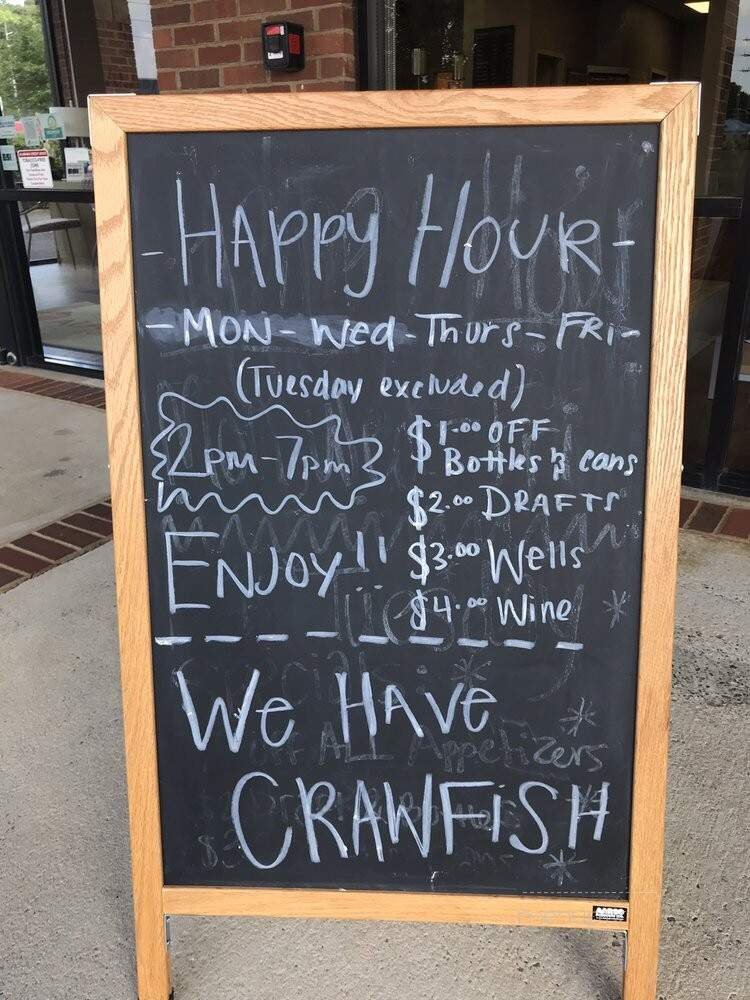 - HAPPY HOUR -
- MON - Wed - Thurs - FRi -
(Tuesday excluded)
2pm - 7pm
$1.00 OFF
Bottles & cans
$2.00 DRAFTS
ENJOY!!
$3.00 Wells
$4.00 Wine
We HAve
CRAWFiSH
All Appetizers